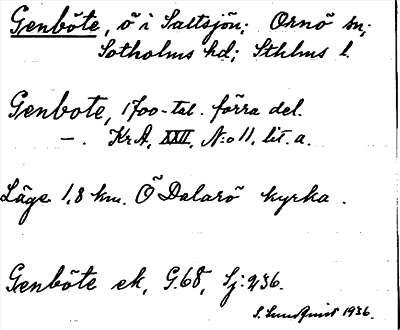 Genböte, ö i Saltsjön; Ornö sn;
Sotholms hd; Sthlms l.
Genbote, 1700-tal. förra del.
—. KrA, XXII, N:o 11, lit. a.
Läge 1,8 km. Ö Dalarö kyrka.
Genböte ek, G.68, Sj: 936.
S. Sundqvist 1936.